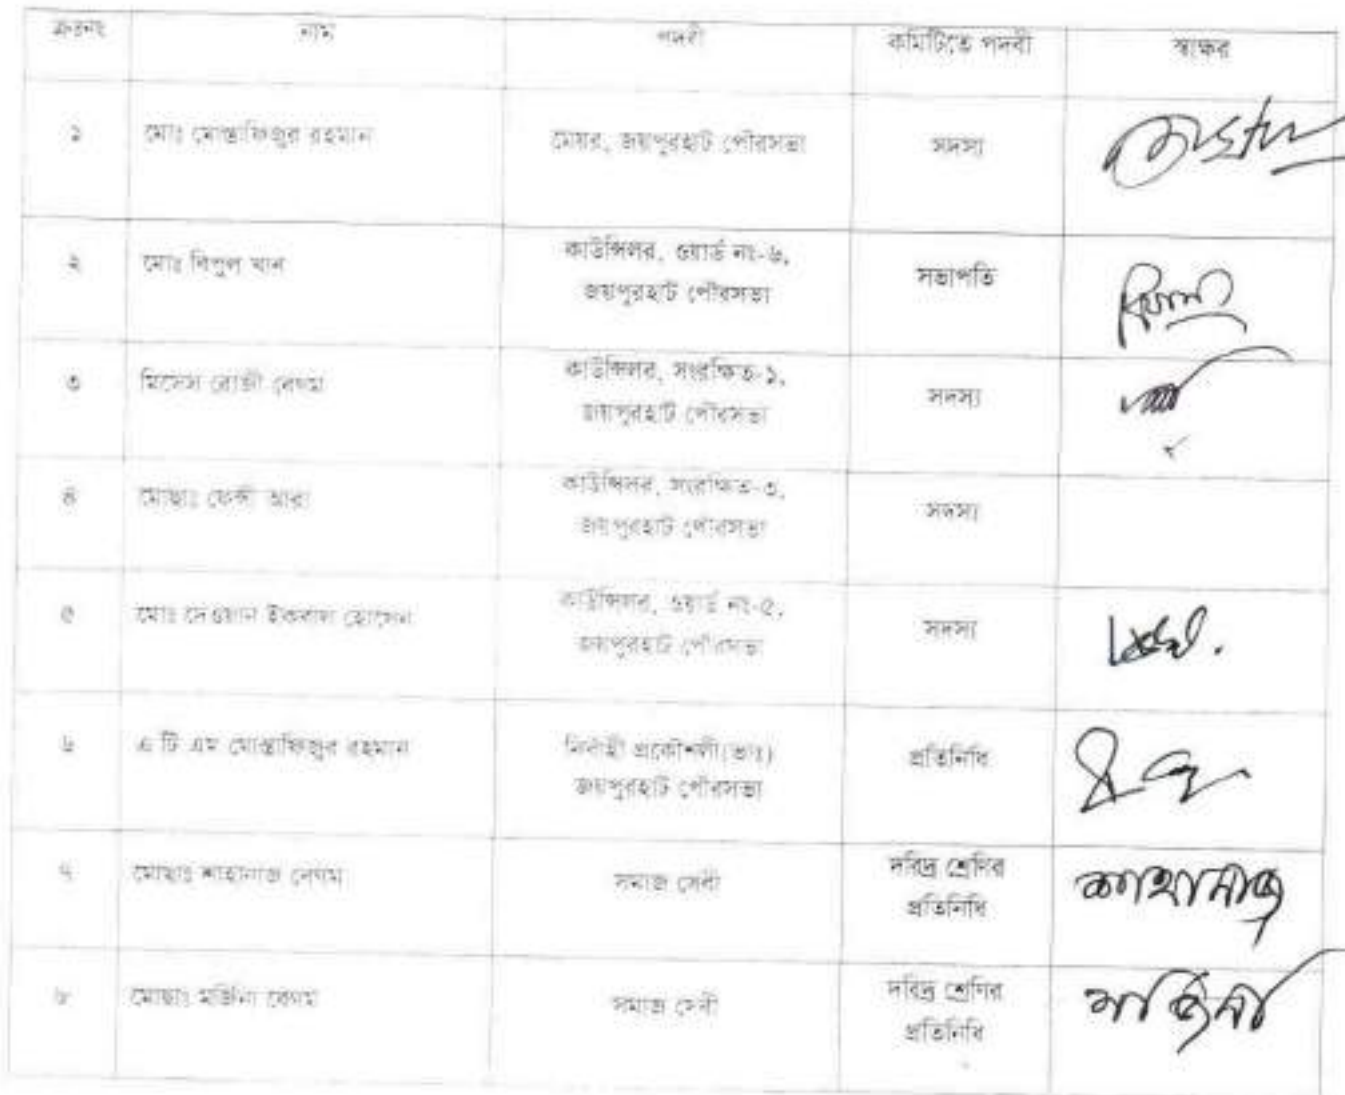 ক্রঃনং নাম পদবী কমিটিতে পদবী স্বাক্ষর
১ মোঃ মোস্তাফিজুর রহমান মেয়র, জয়পুরহাট পৌরসভা সদস্য
২ মোঃ বিপুল খান কাউন্সিলর, ওয়ার্ড নং-৬, সভাপতি
জয়পুরহাট পৌরসভা
৩ মিসেস রোজী বেগম কাউন্সিলর, সংরক্ষিত-১, সদস্য
জয়পুরহাট পৌরসভা
৪ মোছাঃ ফেন্সী আরা কাউন্সিলর, সংরক্ষিত-৩, সদস্য
জয়পুরহাট পৌরসভা
৫ মোঃ দেওয়ান ইকবাল হোসেন কাউন্সিলর, ওয়ার্ড নং-৫, সদস্য
জয়পুরহাট পৌরসভা
৬ এ টি এম মোস্তাফিজুর রহমান নির্বাহী প্রকৌশলী(ভাঃ) প্রতিনিধি
জয়পুরহাট পৌরসভা
৭ মোছাঃ শাহানাজ বেগম সমাজ সেবী দরিদ্র শ্রেণির শাহানাজ
প্রতিনিধি
৮ মোছাঃ মর্জিনা বেগম সমাজ সেবী দরিদ্র শ্রেণির মর্জিনা
প্রতিনিধি